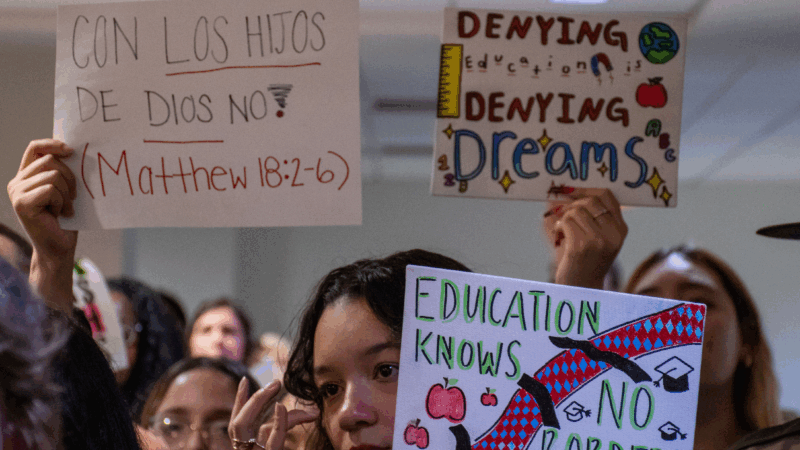 CON LOS HIJOS
DE DIOS NO!
(Matthew 18:2-6)
DENYING
Education is
DENYING
Dreams
ABC
EDUCATION
KNOWS
NO